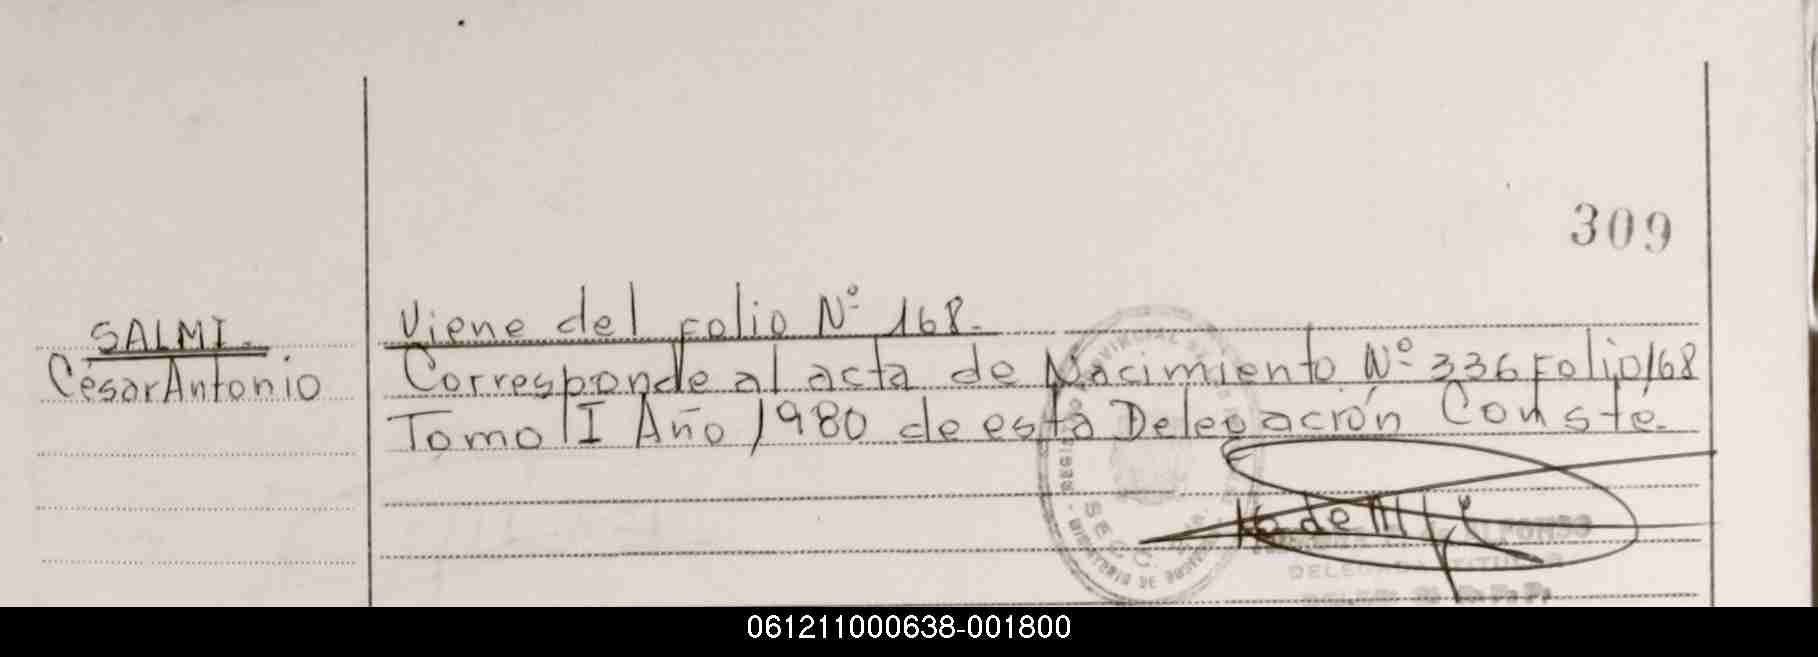 309
SALMI.
César Antonio
Viene del Folio Nº 168.
Corresponde al acta de Nacimiento Nº 336 Folio 168
Tomo I Año 1980 de esta Delegación Consté.
061211000638-001800